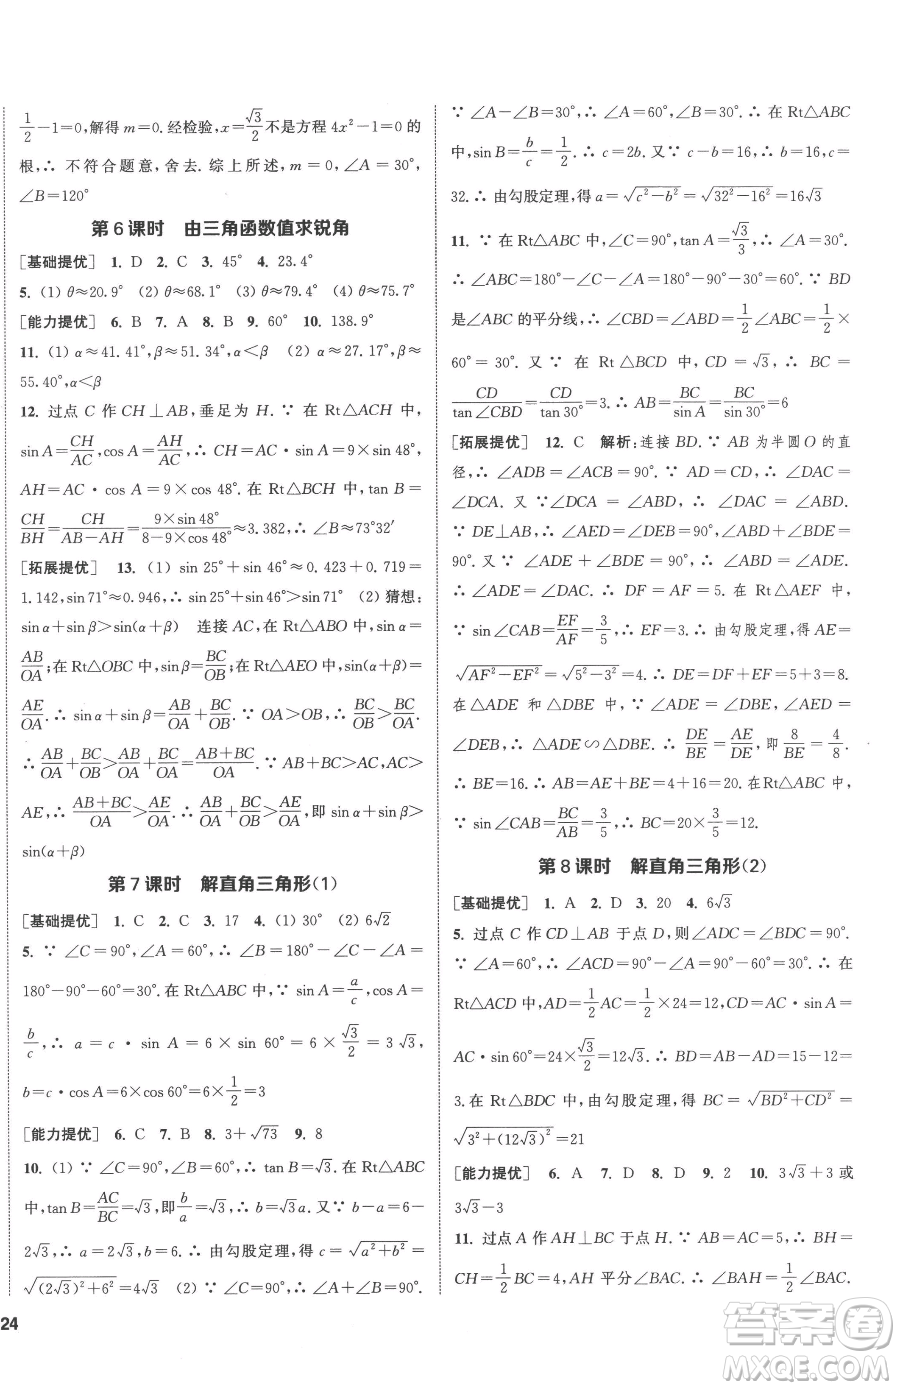 1/2-1=0,解得 m=0.经检验,x=√3/2不是方程 4x²-1=0 的
根,∴ 不符合题意,舍去.综上所述,m=0,∠A=30°,
∠B=120°
第6课时 由三角函数值求锐角
[基础提优] 1. D 2. C 3. 45° 4. 23.4°
5. (1) θ≈20.9° (2) θ≈68.1° (3) θ≈79.4° (4) θ≈75.7°
[能力提优] 6. B 7. A 8. B 9. 60° 10. 138.9°
11. (1) α≈41.41°,β≈51.34°,α<β (2) α≈27.17°,β≈
55.40°,α<β
12. 过点 C 作 CH⊥AB,垂足为 H.∵ 在 Rt△ACH 中,
sin A=CH/AC,cos A=AH/AC,∴ CH=AC·sin A=9×sin 48°,
AH=AC·cos A=9×cos 48°.在 Rt△BCH 中,tan B=
CH/BH=CH/(AB-AH)=(9×sin 48°)/(8-9×cos 48°)≈3.382,∴ ∠B≈73°32′
[拓展提优] 13. (1) sin 25°+sin 46°≈0.423+0.719=
1.142,sin 71°≈0.946,∴ sin 25°+sin 46°>sin 71° (2) 猜想:
sin α+sin β>sin(α+β) 连接 AC,在 Rt△ABO 中,sin α=
AB/OA;在 Rt△OBC 中,sin β=BC/OB;在 Rt△OAE 中,sin(α+β)=
AE/OA.∴ sin α+sin β=AB/OA+BC/OB.∵ OA>OB,∴ BC/OB>BC/OA.
∴ AB/OA+BC/OB>AB/OA+BC/OA=(AB+BC)/OA.∵ AB+BC>AC,AC>
AE,∴ (AB+BC)/OA>AE/OA.∴ AB/OA+BC/OB>AE/OA,即 sin α+sin β>
sin(α+β)
第7课时 解直角三角形(1)
[基础提优] 1. C 2. C 3. 17 4. (1) 30° (2) 6√2
5. ∵ ∠C=90°,∠A=60°,∴ ∠B=180°-∠C-∠A=
180°-90°-60°=30°.在 Rt△ABC 中,∵ sin A=a/c,cos A=
b/c,∴ a=c·sin A=6×sin 60°=6×√3/2=3√3,
b=c·cos A=6×cos 60°=6×1/2=3
[能力提优] 6. C 7. B 8. 3+√73 9. 8
10. (1) ∵ ∠C=90°,∠B=60°,∴ tan B=√3.在 Rt△ABC
中,tan B=AC/BC=√3,即b/a=√3,∴ b=√3a.∵ a+b=6+
2√3,∴ a=2√3,b=6.∴ 由勾股定理,得 c=√(a²+b²)=
√((2√3)²+6²)=4√3 (2) ∵ ∠C=90°,∴ ∠A+∠B=90°.
24
∵ ∠A-∠B=30°,∴ ∠A=60°,∠B=30°.∵ 在 Rt△ABC
中,sin B=b/c=1/2,∴ c=2b.又∵ c-b=16,∴ b=16,c=
32.∴ 由勾股定理,得 a=√(c²-b²)=√(32²-16²)=16√3
11. ∵ 在 Rt△ABC 中,∠C=90°,tan A=√3/3,∴ ∠A=30°.
∴ ∠ABC=180°-∠C-∠A=180°-90°-30°=60°.∵ BD
是∠ABC 的平分线,∴ ∠CBD=∠ABD=1/2∠ABC=1/2×
60°=30°.又∵在 Rt△BCD 中,CD=√3,∴ BC=
CD/tan∠CBD=CD/tan 30°=3.∴ AB=BC/sin A=BC/sin 30°=6
[拓展提优] 12. C 解析:连接 BD.∵ AB 为半圆 O 的直
径,∴ ∠ADB=∠ACB=90°.∵ AD=CD,∴ ∠DAC=
∠DCA.又∵ ∠DCA=∠ABD,∴ ∠DAC=∠ABD.
∵ DE⊥AB,∴ ∠AED=∠DEB=90°,∠ABD+∠BDE=
90°.又∵ ∠ADE+∠BDE=90°,∴ ∠ABD=∠ADE.
∴ ∠ADE=∠DAC.∴ DF=AF=5.在 Rt△AEF 中,
∵ sin∠CAB=EF/AF=3/5,∴ EF=3.∴ 由勾股定理,得 AE=
√(AF²-EF²)=√(5²-3²)=4.∴ DE=DF+EF=5+3=8.
在△ADE 和△DBE 中,∵ ∠ADE=∠DBE,∠AED=
∠DEB,∴ △ADE∽△DBE.∴ DE/BE=AE/DE,即 8/BE=4/8.
∴ BE=16.∴ AB=AE+BE=4+16=20.在 Rt△ABC 中,
∵ sin∠CAB=BC/AB=3/5,∴ BC=20×3/5=12.
第8课时 解直角三角形(2)
[基础提优] 1. A 2. D 3. 20 4. 6√3
5. 过点 C 作 CD⊥AB 于点 D,则∠ADC=∠BDC=90°.
∵ ∠A=60°,∴ ∠ACD=90°-∠A=90°-60°=30°.∴ 在
Rt△ACD 中,AD=1/2AC=1/2×24=12,CD=AC·sin A=
AC·sin 60°=24×√3/2=12√3.∴ BD=AB-AD=15-12=
3.在 Rt△BDC 中,由勾股定理,得 BC=√(BD²+CD²)=
√(3²+(12√3)²)=21
[能力提优] 6. A 7. D 8. D 9. 2 10. 3√3+3 或
3√3-3
11. 过点 A 作 AH⊥BC 于点 H.∵ AB=AC,∴ BH=
CH=1/2BC=4,AH 平分∠BAC.∴ ∠BAH=1/2∠BAC.
答案卷
MXQE.COM